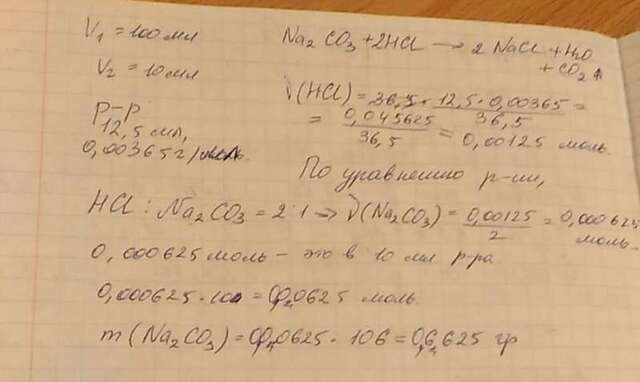 V₁ = 100 мл
V₂ = 10 мл
р-р
12,5 мл,
0,00365 г/мл
Na₂CO₃ + 2HCl → 2 NaCl + H₂O
+ CO₂↑
ν(HCl) = 36,5 · 12,5 · 0,00365 / 36,5 =
= 0,045625 / 36,5 = 0,00125 моль.
По уравнению р-ии,
HCl : Na₂CO₃ = 2:1 → ν(Na₂CO₃) = 0,00125 / 2 = 0,000625
моль.
0,000625 моль – это в 10 мл р-ра
0,000625 · 100 = 0,0625 моль.
m(Na₂CO₃) = 0,0625 · 106 = 6,625 гр